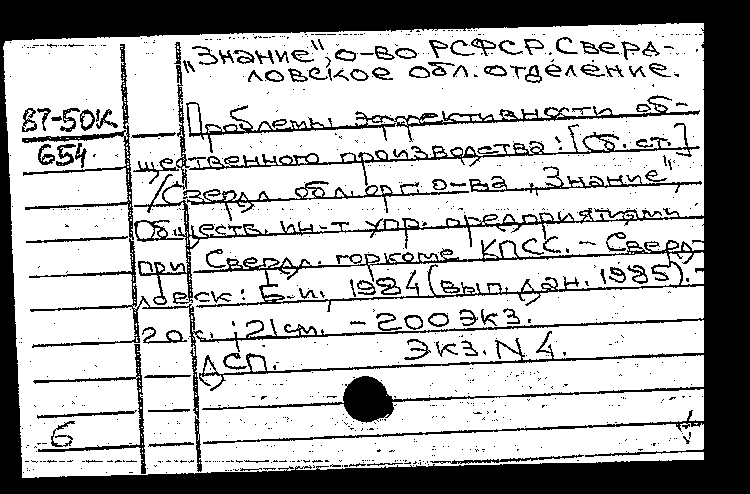 „Знание", о-во РСФСР. Сверд-
ловское обл. отделение.
87-50К
654
Проблемы эффективности об-
щественного производства: [Сб. ст.]
/Свердл. обл. орг. о-ва „Знание",
Обществ. ин-т упр. предприятиями
при Свердл. горкоме КПСС. - Сверд-
ловск: Б.и., 1984 (вып. дан. 1985). -
20 с.; 21 см. - 200 экз.
ДСП. Экз. N 4.
б